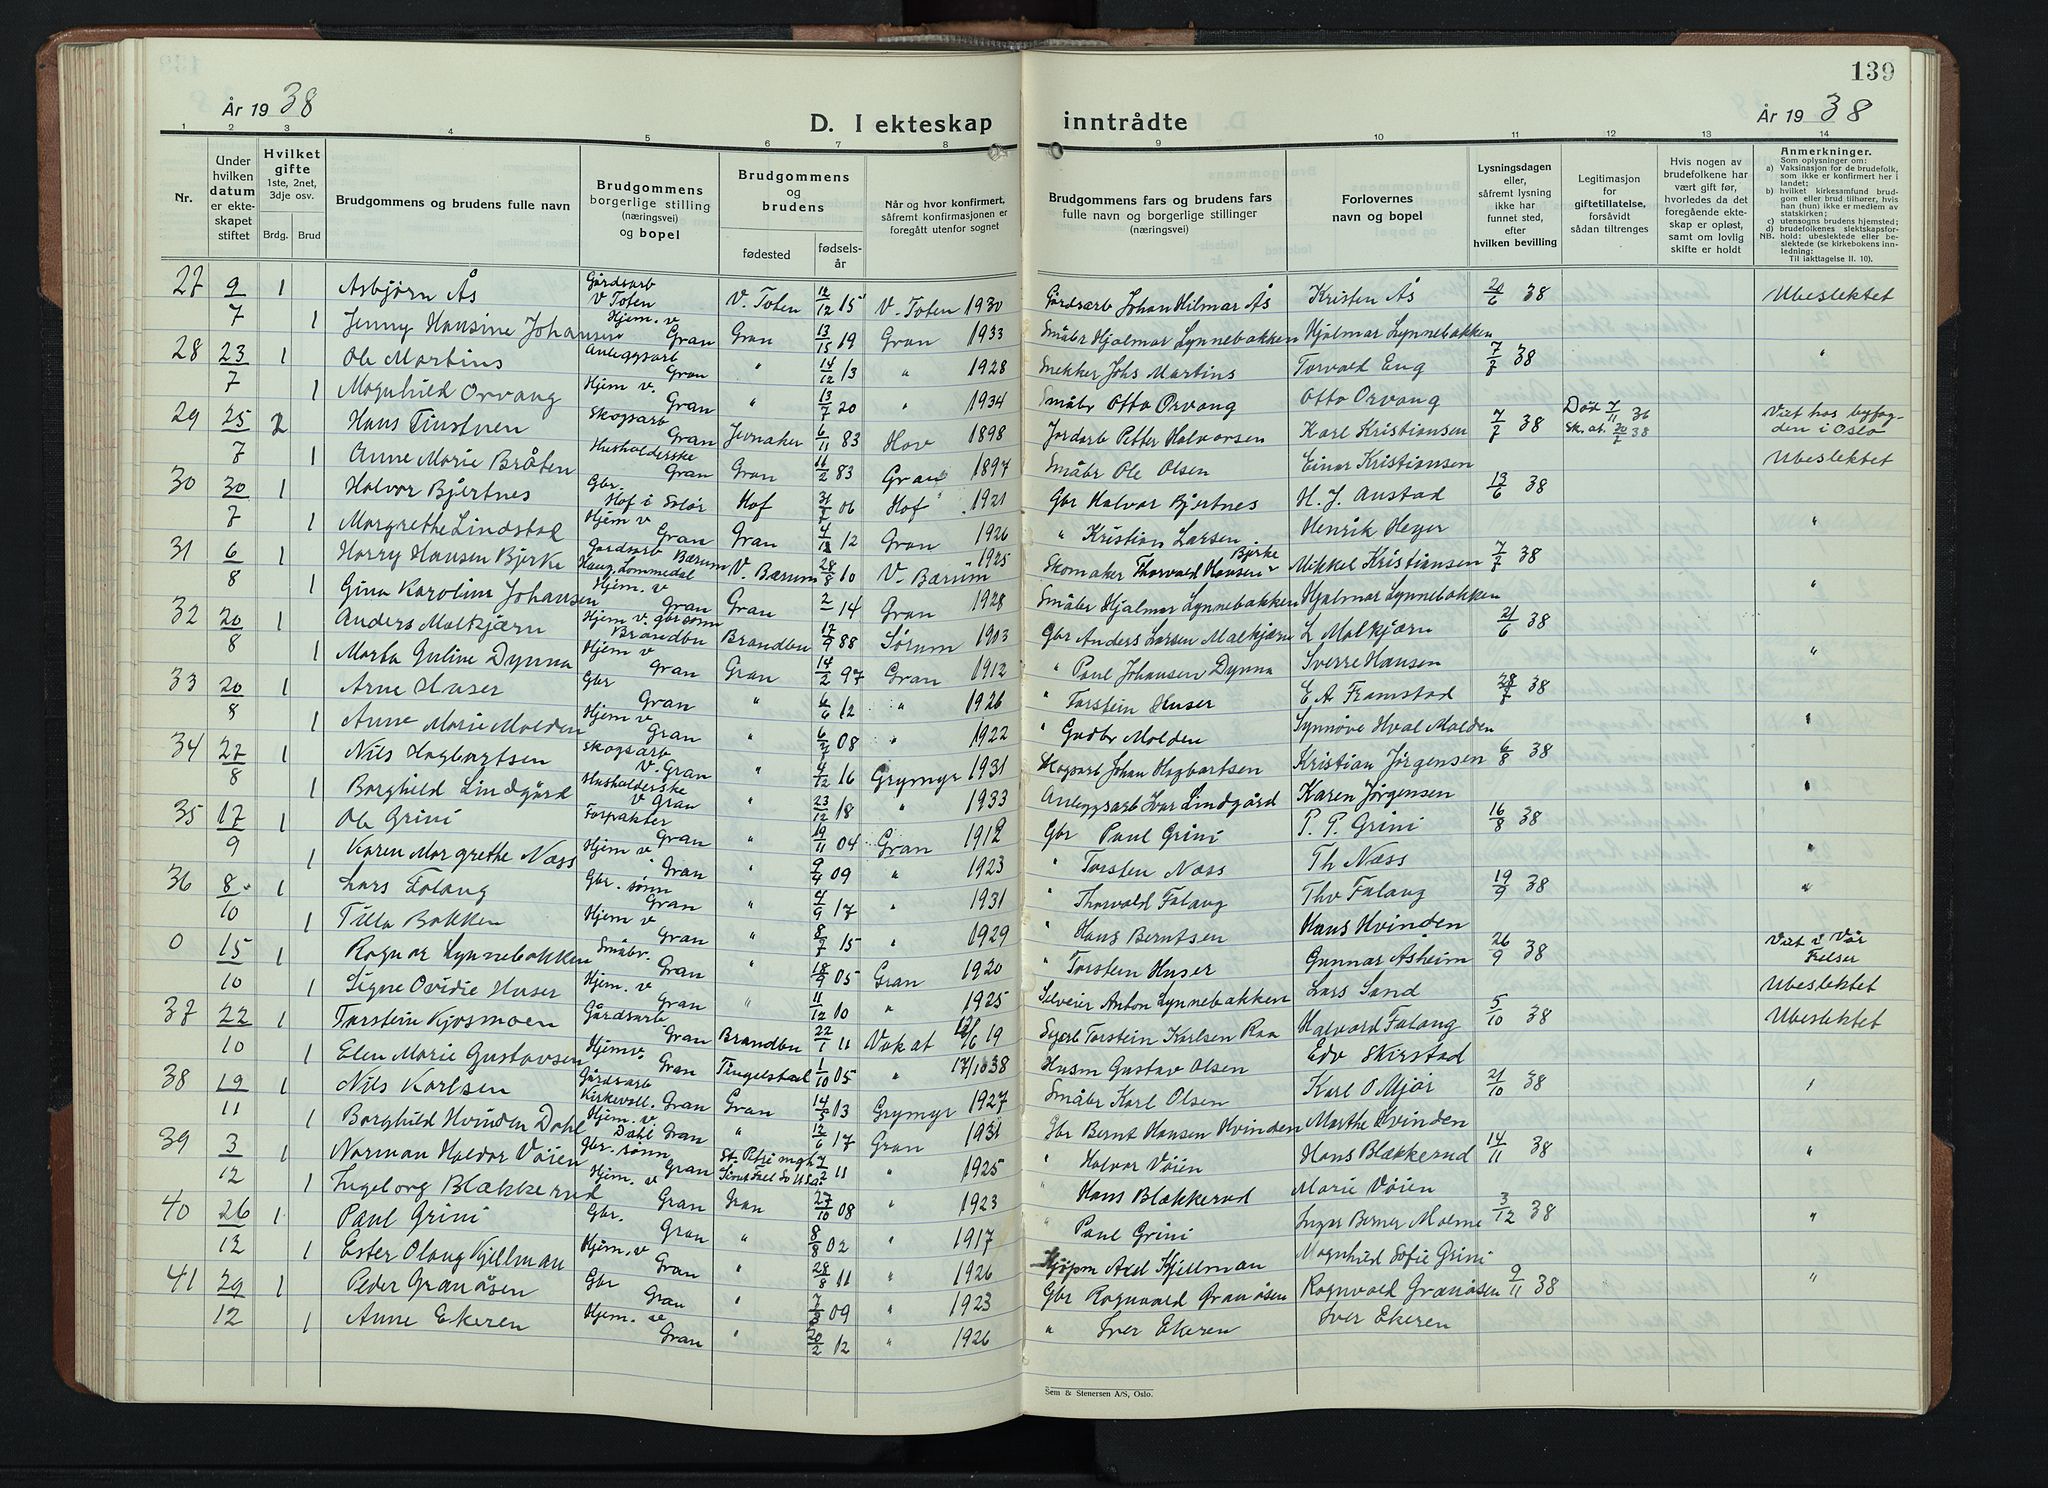 139
År 19 38
D. I ekteskap inntrådte
År 19 38
1 2 3 4 5 6 7 8 9 10 11 12 13 14
Nr.
Under hvilken datum er ekteskapet stiftet
Hvilket gifte 1ste, 2net, 3dje osv.
Brdg. Brud
Brudgommens og brudens fulle navn
Brudgommens borgerlige stilling (næringsvei) og bopel
Brudgommens og brudens
fødested
fødselsår
Når og hvor konfirmert, såfremt konfirmasjonen er foregått utenfor sognet
Brudgommens fars og brudens fars fulle navn og borgerlige stillinger (næringsvei)
Forlovernes navn og bopel
Lysningsdagen eller, såfremt lysning ikke har funnet sted, efter hvilken bevilling
Legitimasjon for giftetillatelse, forsåvidt sådan tiltrenges
Hvis nogen av brudefolkene har vært gift før, hvorledes da det foregående ekteskap er opløst, samt om lovlig skifte er holdt
Anmerkninger.
Som oplysninger om:
a) Vaksinasjon for de brudefolk, som ikke er konfirmert her i landet;
b) hvilket kirkesamfund brudgom eller brud tilhører, hvis han (hun) ikke er medlem av statskirken;
c) utensogns brudens hjemsted;
d) brudefolkenes slektskapsforhold: ubeslektede eller beslektede (se kirkebokens innledning:
NB. Til iakttagelse II. 10).
27 9/7 1 Asbjørn Ås Gårdsarb V Toten V. Toten 12/12 15 V. Toten 1930 Gårdsarb Johan Hilmar Ås Kristen Ås 20/6 38 Ubeslektet
1 Jenny Hansine Johansen Hjem. v Gran Gran 13/15 19 Gran 1933 Småbr Hjalmar Lynnebakken Hjalmar Lynnebakken
28 23/7 1 Ole Martins Anleggsarb Gran " 14/12 13 " 1928 Snekker Johs Martins Torvald Eng 7/7 38 "
1 Magnhild Orvang Hjem v. Gran " 13/7 20 " 1934 Småbr Otto Orvang Otto Orvang
29 25/7 2 Hans Tinstuen Skogsarb Gran Jevnaker 6/11 83 Hov 1898 Jordarb Petter Halvorsen Karl Kristiansen 7/7 38 Død 7/11 36 Sk. at. 20/7 38 Viet hos byfogden i Oslo
1 Anne Marie Bråten Husholderske Gran Gran 16/2 83 Gran 1897 Småbr Ole Olsen Einar Kristiansen Ubeslektet
30 30/7 1 Halvor Bjertnes Gbr. Hof i Solør Hof 06 Hof 1921 Gbr Halvor Bjertnes H. J. Anstad 13/6 38
1 Margrethe Lindstad Hjem v Gran Gran 12 Gran 1926 " Kristian Larsen Henrik Heyer "
31 6/8 1 Harry Hansen Bjerke Gårdsarb Bærum Haug, Lommedal V. Bærum 28/8 10 V. Bærum 1925 Skomaker Thorvald Hansen Bjerke Mikkel Kristiansen 7/7 38
1 Gina Karoline Johansen Hjem. v Gran Gran 14 Gran 1928 Småbr Hjalmar Lynnebakken Hjalmar Lynnebakken "
32 20/8 1 Anders Molkjærn Hjem v. gbr sønn Brandbu Brandbu 12/9 88 Sørum 1903 Gbr Anders Larsen Malkjærn L Molkjærn 21/6 38
1 Marta Guline Dynna Hjem v Gran Gran 14/2 97 Gran 1912 " Paul Johansen Dynna Sverre Hansen "
33 20/8 1 Arne Huser Gbr Gran " 6/6 12 " 1926 " Torstein Huser E. A Framstad 28/7 38
1 Anne Marie Molden Hjem v Gran " 08 " 1922 " Gudbr Molden Synnøve Hval Molden "
34 27/8 1 Nils Hagbartsen Skogsarb V. Gran " 4/12 16 Grymyr 1931 Skogsarb Johan Hagbartsen Kristian Jørgensen 6/8 38
1 Borghild Lindgård Husholderske V Gran " 23/12 18 " 1933 Anleggsarb Ivar Lindgård Karen Jørgensen "
35 17/9 1 Ole Grini Forpakter Gran " 19/11 04 Gran 1912 Gbr Paul Grini P. P. Grini 16/8 38
1 Karen Margrethe Næss Hjem v Gran " 9/4 09 " 1923 " Torsten Næss Th Næss "
36 8/10 1 Lars Falang Gbr. sønn Gran " 4/9 17 " 1931 " Thorvald Falang Thv Falang 19/9 38 "
1 Tilla Bakken Hjem v Gran " 8/7 15 " 1929 " Hans Berntsen Hans Hvinden
0 15/10 1 Ragnar Lynnebakken Småbr. Gran " 18/9 05 Gran 1920 " Torstein Huser Gunnar Åsheim 26/9 38 Viet i Vår Frelser
1 Signe Ovidie Huser Hjem. v Gran " 11/12 10 " 1925 Anton Lynnebakken Lars Sand Ubeslektet
37 22/10 1 Torstein Kjosmoen Gårdsarb Gran Brandbu 22/1 11 Vakat 12/6 19 Torstein Karlsen Raa Halvord Falang 5/10 38 Ubeslektet
Elen Marie Gustavsen Hjem v. Gran Tingelstad 1/10 05 " 17/10 38 Husm Gustav Olsen Edv Skirstad
38 19/11 1 Nils Karlsen Gårdsarb Kirkevoll. Gran Gran 14/5 03 Grymyr 1927 Småbr Karl Olsen Karl O Mjør 21/10 38
1 Borghild Hvinden Dahl Hjem. v. Dahl Gran " 12/6 17 Gran 1931 Gbr Bernt Hansen Hvinden Marthe Hvinden
39 3/12 1 Norman Haldor Vøien Gbr. sønn Gran St. Petri mgh 11 " 1925 " Halvor Vøien Hans Blækkerud 14/11 38 "
1 Ingeborg Blækkerud Hjem. v Gran Gran 27/10 08 " 1923 " Hans Blækkerud Marie Vøien
40 26/12 1 Paul Grini Gbr. Gran " 8/8 02 " 1917 " Paul Grini Ingar Berner Malme 3/12 38 "
1 Ester Olaug Kjellman Hjem. v Gran " 28/8 11 " 1926 Kjøpm Axel Kjellman Magnhild Sofie Grini
41 29/12 1 Peder Granåsen Gbr Gran " 7/3 09 " 1923 Gbr Ragnvald Granåsen Ragnvald Granåsen 9/11 38 "
1 Anne Ekeren Hjem. v Gran " 20/2 12 " 1926 " Iver Ekeren Iver Ekeren
Sem & Stenersen A/S, Oslo.